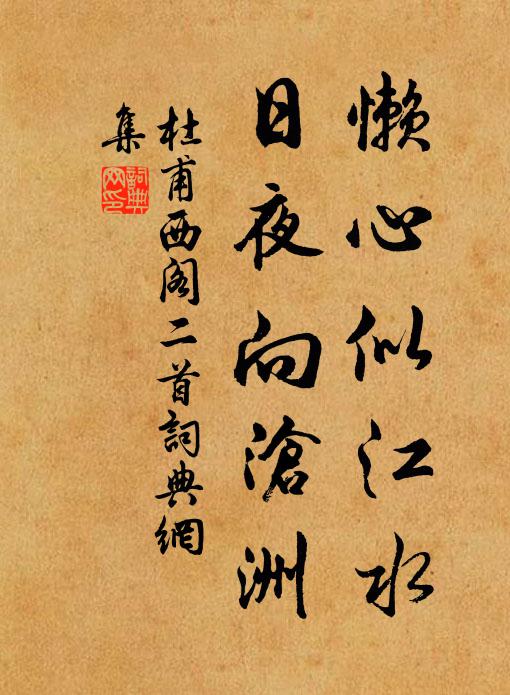 懒心似江水
日夜向滄洲
杜甫西阁二首詞典網
集
詞典
网印